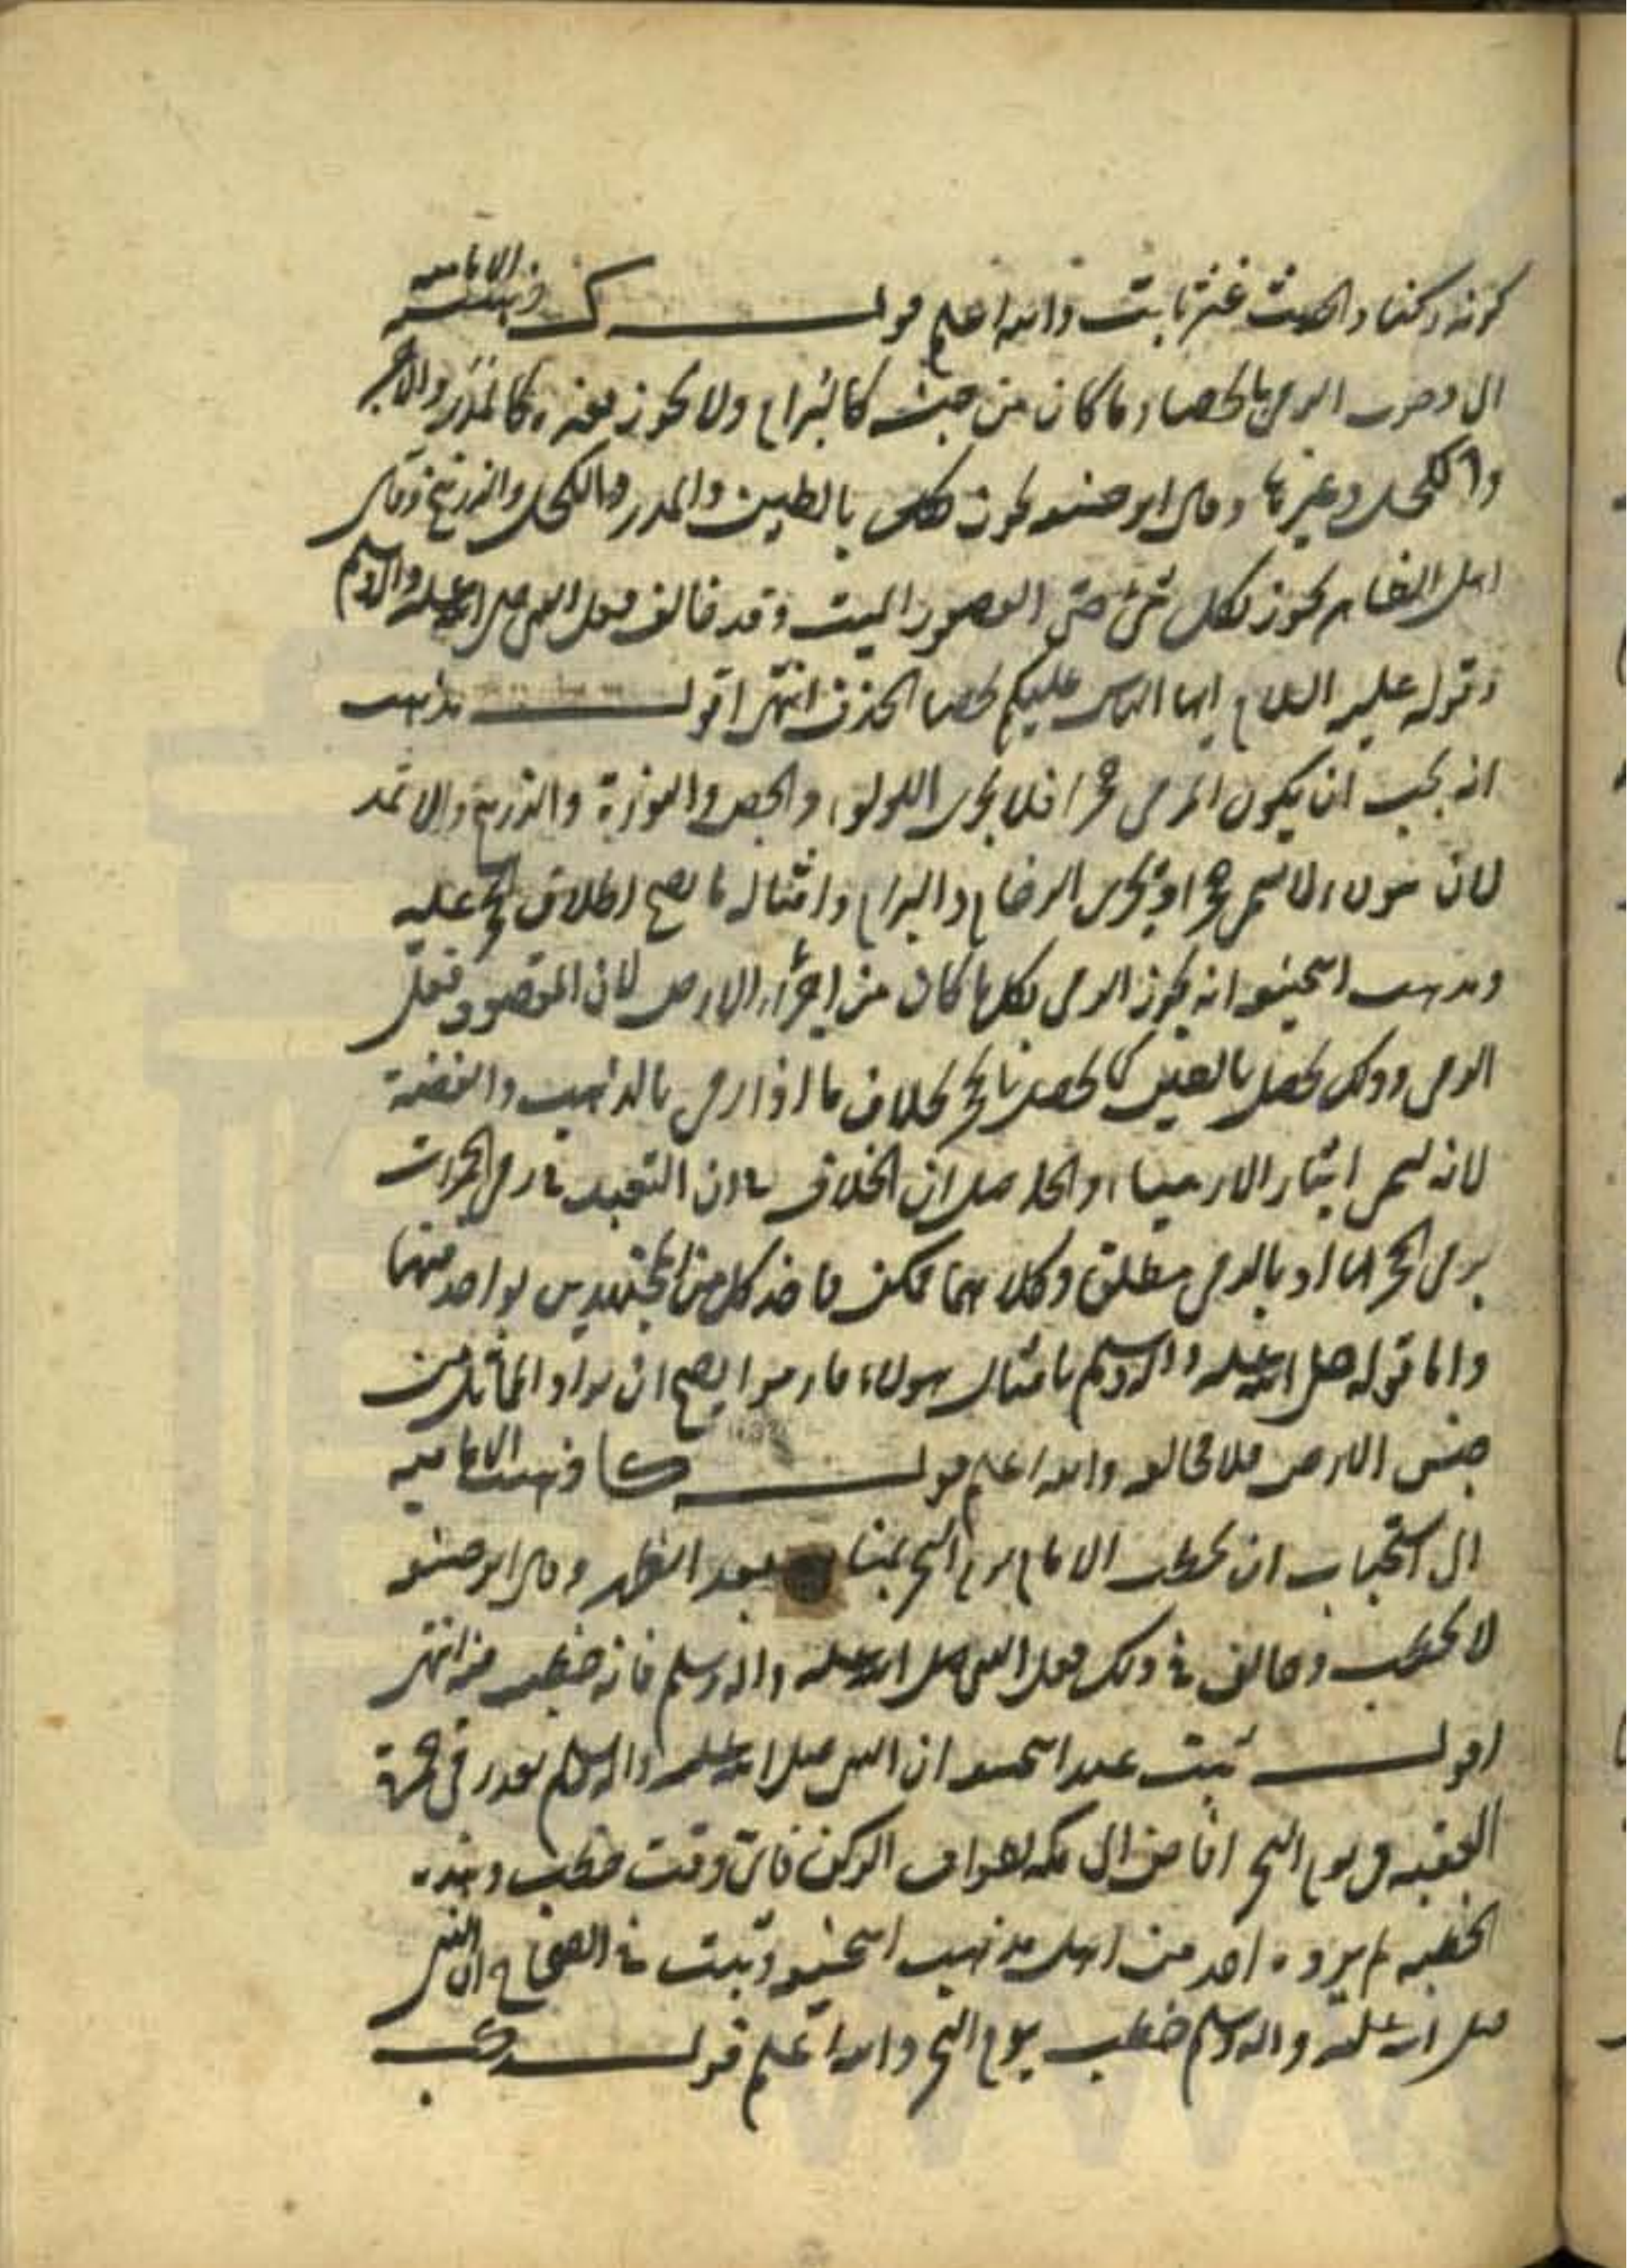 كونه ركنا والحديث غير ثابت والله اعلم قولـــــه ك ذهبت الامامية
الى وجوب الرمي بالحصا وما كان من جنسه كالبرام ولا يجوز بغيره كالمدر والاجر
والكحل وغيرها وقال ابو حنيفه يجوز بالطين والمدر والكحل والزرنيخ وقال
اهل الظاهر يجوز بكل شئ حتى العصفور الميت وقد خالف قول النبي صلى الله عليه واله وسلم
وقوله عليه السلام ايها الناس عليكم بحصا الخذف انتهى اقولـــــ مذهب
انه يجب ان يكون المرمي حجرا فلا يجزى اللولو، والجص والنورة والزرنيخ والاثمد
لان هولاء لا تسمى حجرا ويجزى الرخام والبرام وامثاله ما يصح اطلاق الحجر عليه
ومذهب ابيحنيفه انه يجوز الرمي بكل ما كان من اجزاء الارض لان المقصود فعل
الرمي وذلك يحصل بالطين كما يحصل بالحجر بخلاف ما اذا رمى بالذهب والفضة
لانه يسمى ايثارا لا رميا، والحاصل ان الخلاف في ان التعبد في رمى الجمرات
برمى الحجر اما او بالرمي مطلقا وكلاهما ممكن فاخذ كل من المجتهدين بواحد منهما
واما قوله صلى الله عليه واله وسلم بامثال هولاء فارموا يصح ان يراد المماثل من
جنس الارض فلا مخالفه والله اعلم قولـــــه كا ذهبت الامامية
الى استحباب ان يخطب الامام يوم النحر بمنا بعد الظهر وقال ابو حنيفه
لا يخطب وخالف في ذلك فعل النبي صلى الله عليه واله وسلم فانه خطب فيه انتهى
اقولـــــ ثبت عند ابيحنيفه ان النبي صلى الله عليه واله وسلم بعد رمى جمرة
العقبة في يوم النحر افاض الى مكه لطواف الركن فاى وقت خطب وهذه
الخطبه لم يروه احد من اهل مذهب ابيحنيفه وثبت في الصحاح ان النبي
صلى الله عليه واله وسلم خطب يوم النحر والله اعلم قولـــــه كب